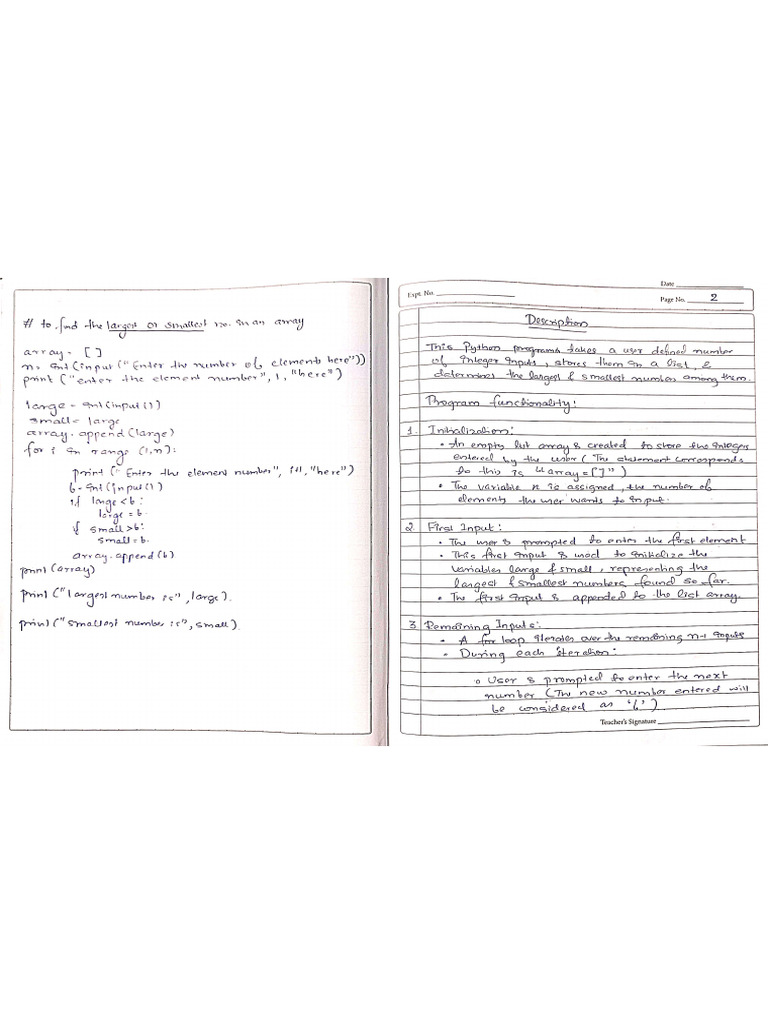 # to find the largest or smallest no. in an array
array = [ ]
n = int(input("Enter the number of elements here"))
print ("enter the element number", 1, "here")
large = int(input())
small = large
array.append(large)
for i in range (1,n):
print ("Enter the element number", i+1, "here")
b = int(input())
if large < b:
large = b
if small > b:
small = b.
array.append(b)
print (array)
print ("largest number is", large).
print ("smallest number is", small)
Date
Expt. No.
Page No. 2
Description
This Python programs takes a user defined number
of integer inputs, stores them in a list, &
determines the largest & smallest number among them.
Program functionality:
1. Initialization:
• An empty list array is created to store the integers
entered by the user (The statement corresponds
to this is "array = [ ]")
• The variable n is assigned, the number of
elements the user wants to input.
2. First Input:
• The user is prompted to enter the first element
• This first input is used to initialize the
variables large & small, representing the
largest & smallest numbers found so far.
• The first input is appended to the list array.
3 Remaining Inputs:
• A for loop iterates over the remaining n-1 inputs
• During each iteration:
o User is prompted to enter the next
number (The new number entered will
be considered as 'b')
Teacher's Signature